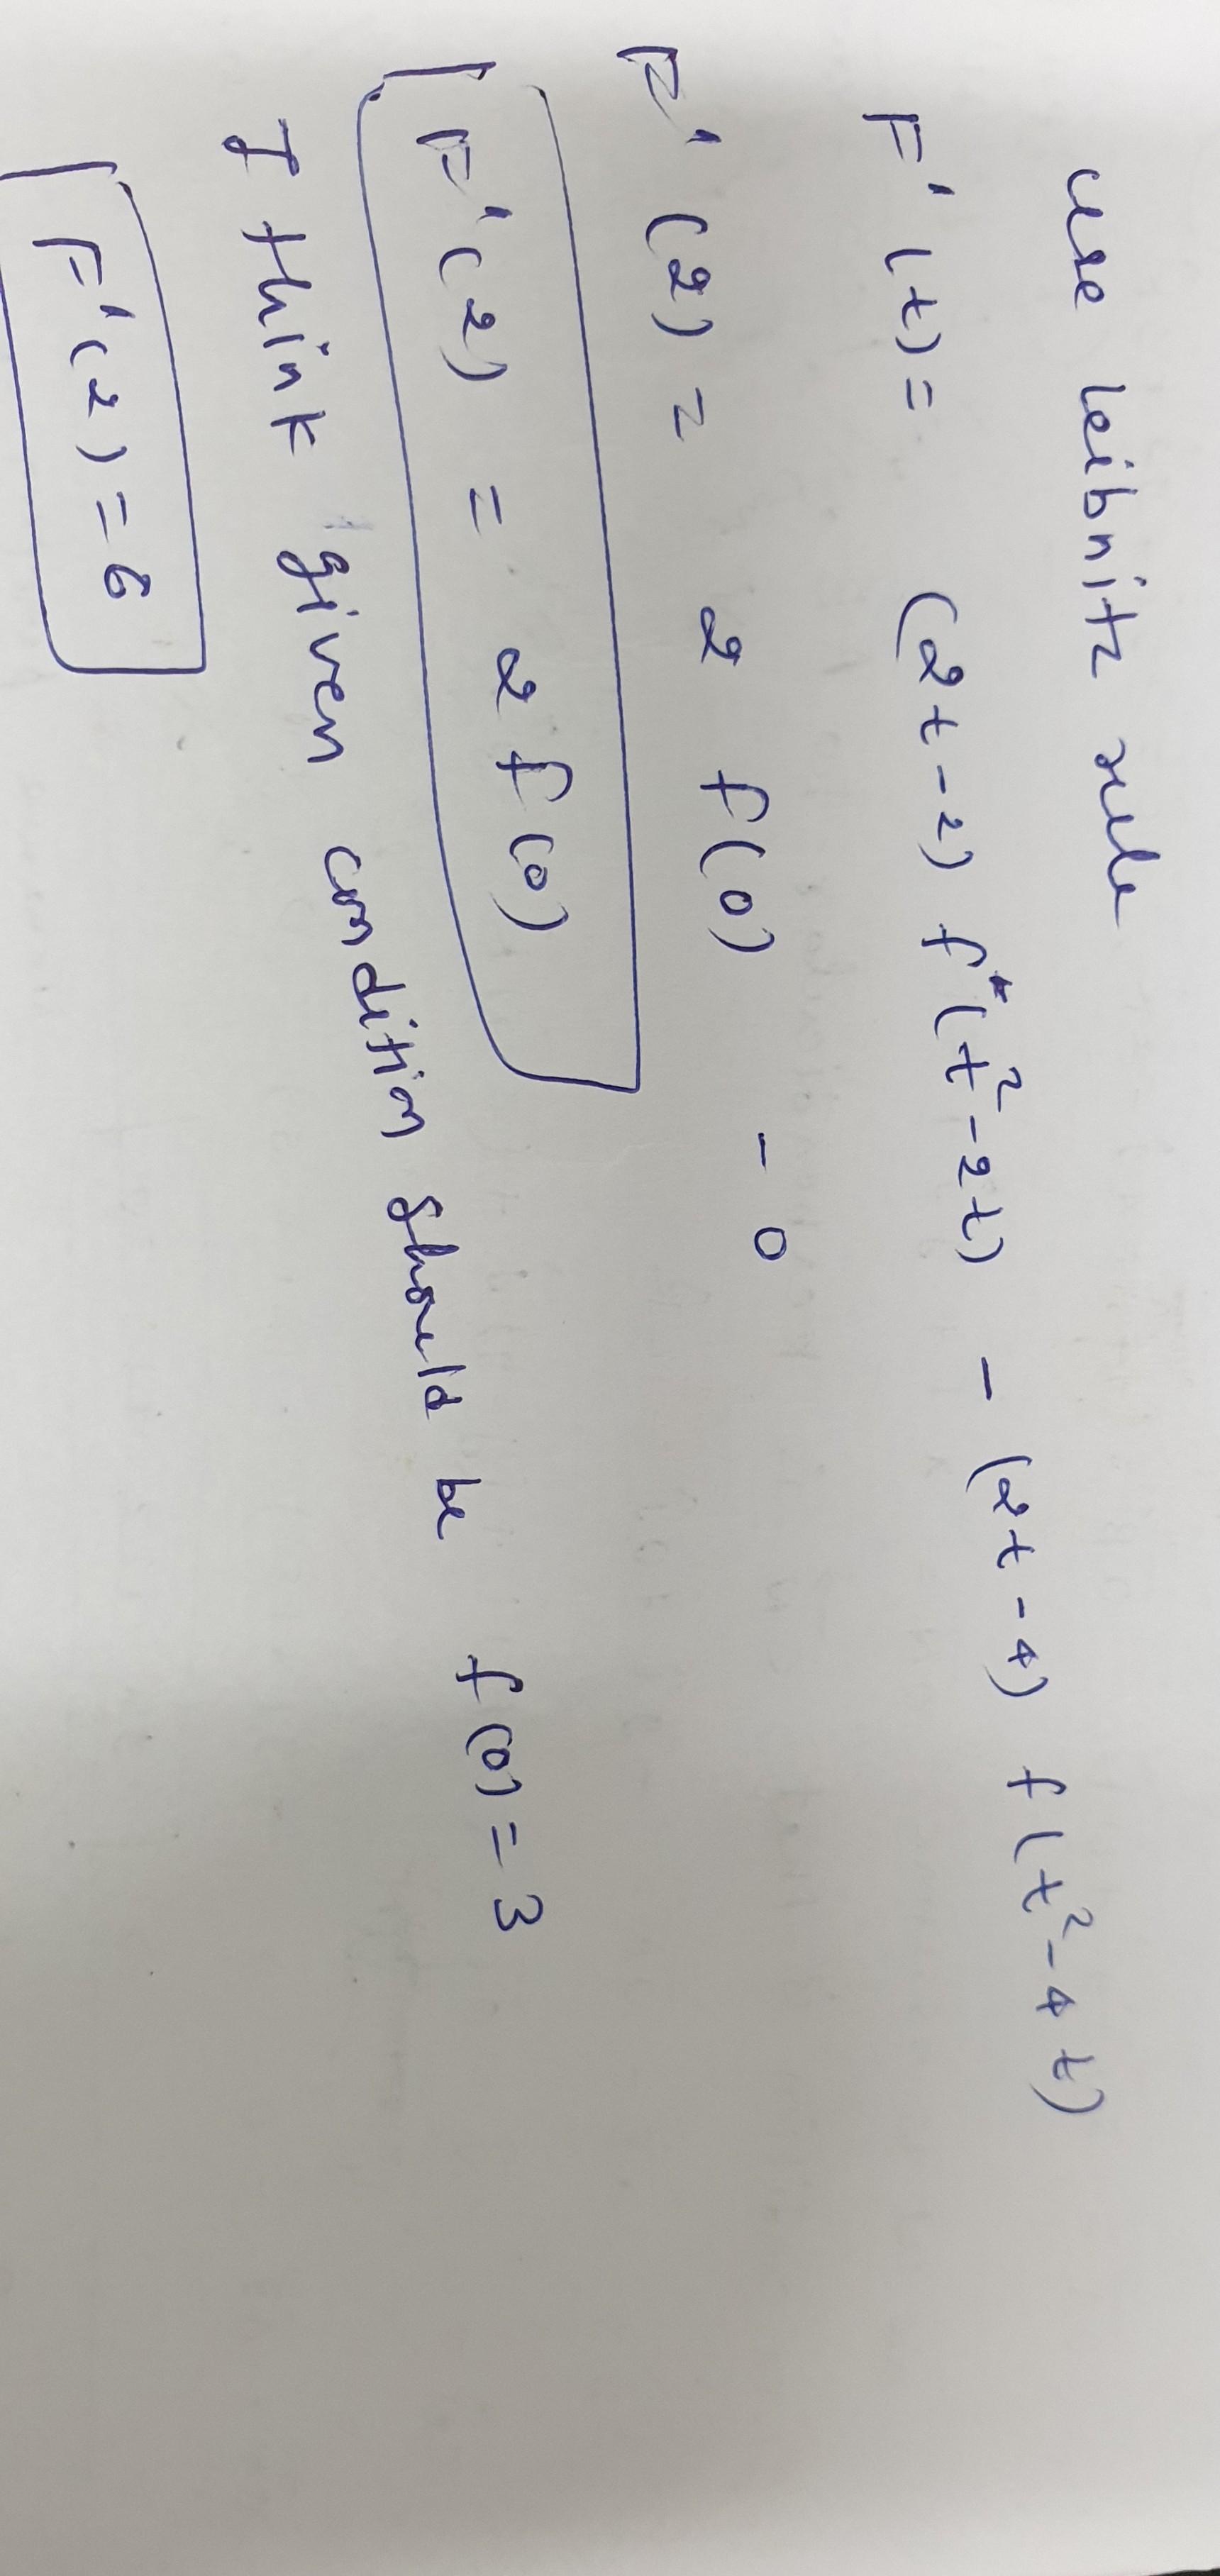 use leibnitz rule
F'(t) = (2t-2) f(t²-2t) - (2t-4) f(t²-4t)
F'(2) = 2 f(0) - 0
F'(2) = 2 f(0)
I think given condition should be f(0) = 3
F'(2) = 6